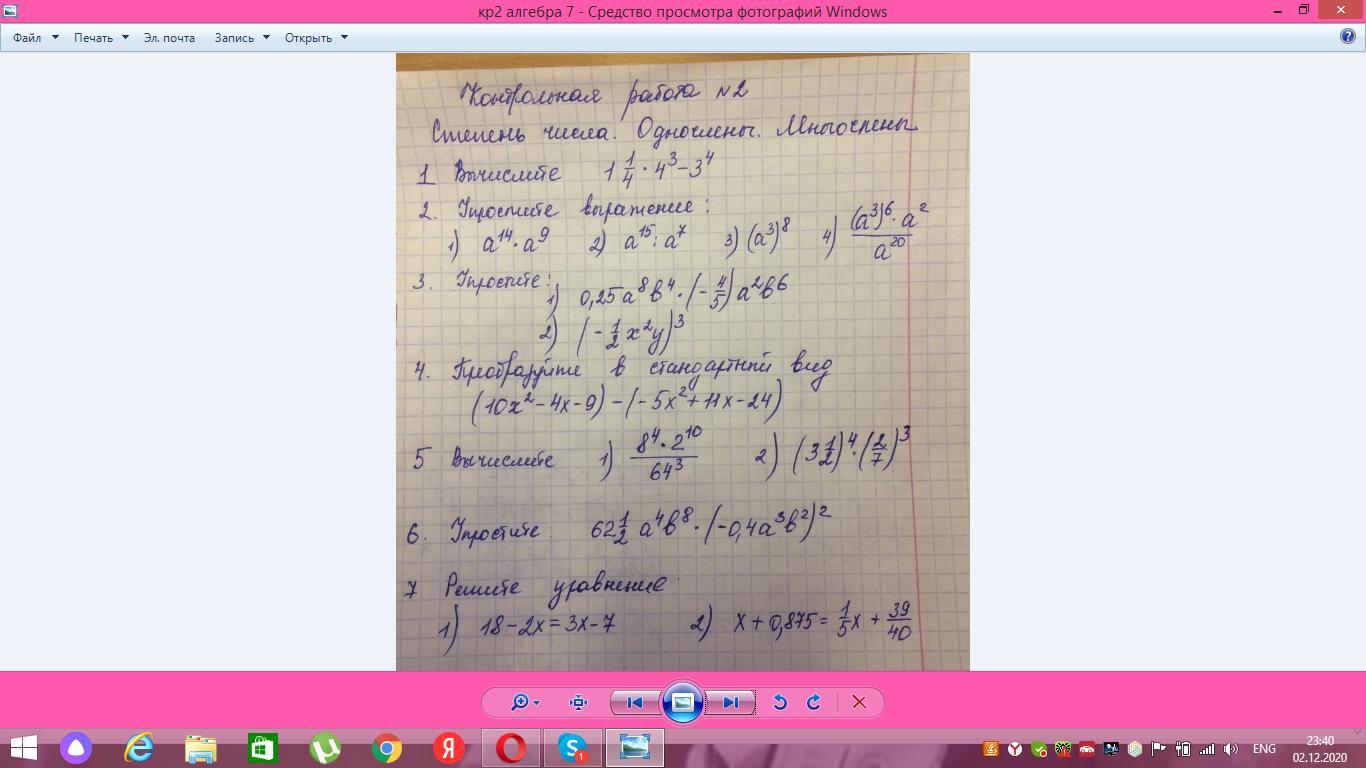 кр2 алгебра 7 - Средство просмотра фотографий Windows
Файл Печать Эл. почта Запись Открыть
Контрольная работа №2
Степень числа. Одночлены. Многочлены
1 Вычислите 1 1/4 · 4³ - 3⁴
2. Упростите выражение:
1) a¹⁴ · a⁹ 2) a¹⁵ : a⁷ 3) (a³)⁸ 4) (a³)⁶ · a² / a²⁰
3. Упростите:
1) 0,25a⁸b⁴ · (-4/5)a²b⁶
2) (-1/2 x²y)³
4. Преобразуйте в стандартный вид
(10x² - 4x - 9) - (-5x² + 11x - 24)
5 Вычислите 1) 8⁴ · 2¹⁰ / 64³ 2) (3 1/2)⁴ · (2/7)³
6. Упростите: 62 1/2 a⁴b⁸ · (-0,4a³b²)²
7 Решите уравнение
1) 18 - 2x = 3x - 7 2) x + 0,875 = 1/5 x + 39/40
ENG
23:40
02.12.2020